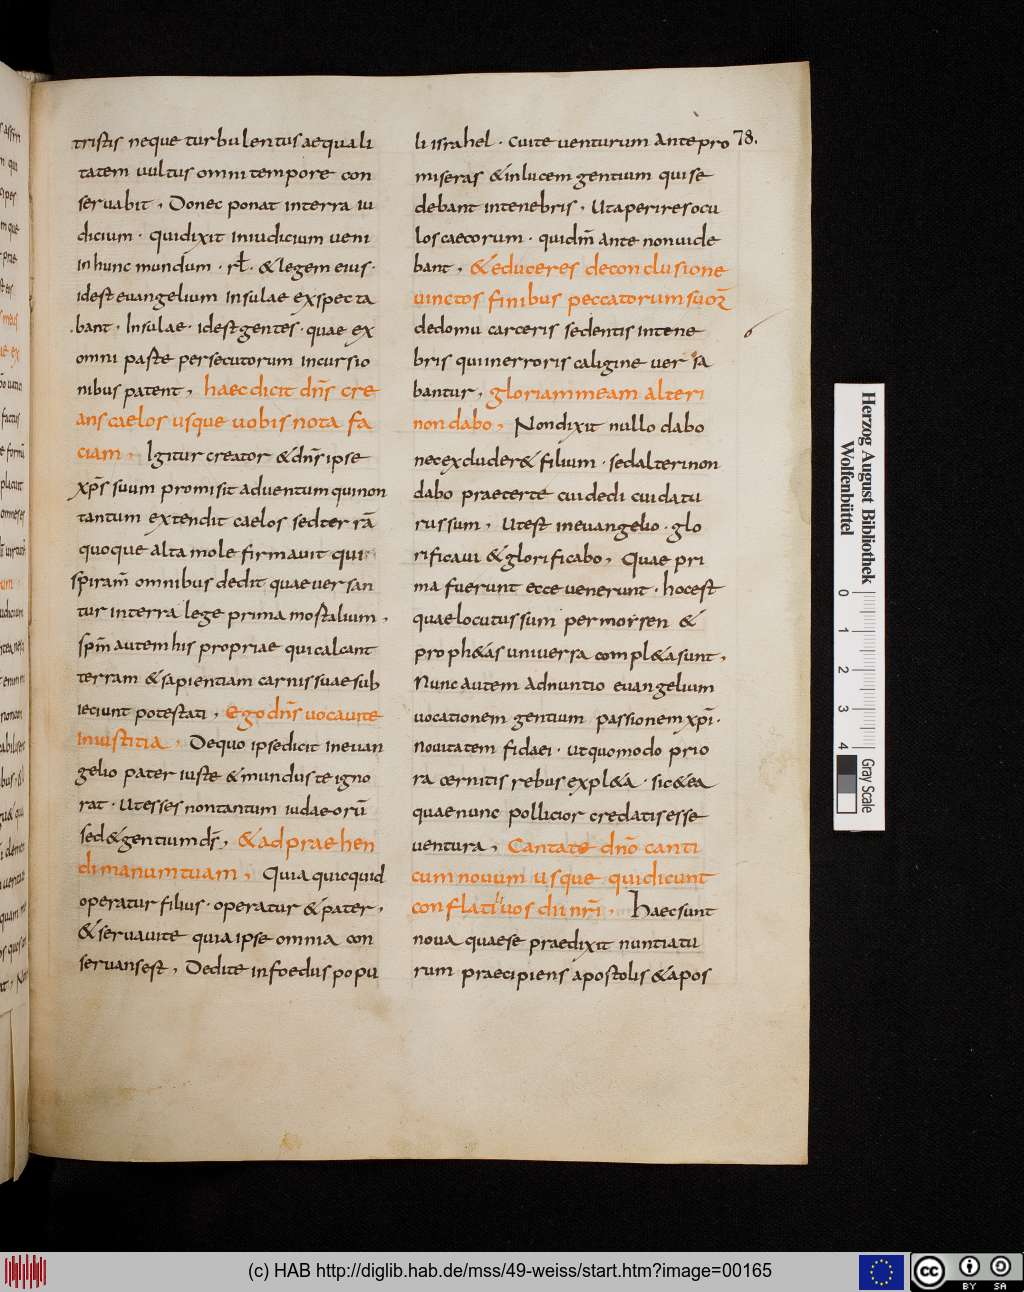 78.
tristis neque turbulentus aequali
tatem uultus omni tempore con
seruabit, Donec ponat interra iu
dicium · quidixit iniudicium ueni
in hunc mundum · rł · & legem eius ·
idest euangelium insulae exspecta
bant · Insulae · idest gentes · quae ex
omni parte persecutorum incursio
nibus patent, haec dicit dn̄s cre
ans caelos usque uobis nota fa
ciam, Igitur creator & dn̄s ipse
xp̄s suum promisit aduentum qui non
tantum extendit caelos sed terrā
quoque alta mole firmauit qui
spiram̄ omnibus dedit quae uersan
tur interra lege prima mostalium,
sp̄m autem his propriae qui calcant
terram & sapientiam carnis suae sub
ieciunt potestati, Ego dn̄s uocauite
iniustitia, Dequo ipse dicit ineuan
gelio pater iuste & mundus te igno
rat · Ut esses non tantum iudaeorū
sed & gentium d̄s, & adpraehen
di manum tuam, Quia quicquid
operatur filius · operatur & pater,
& seruauite quia ipse omnia con
seruans est, Dedite infoedus popu
li israhel · cuite uenturum ante pro
miseras & inlucem gentium qui se
debant intenebris, Ut aperires ocu
los caecorum · quidm̄ ante non uide
bant, & educeres deconclusione
uinctos finibus peccatorum suoꝝ
dedomu carceris sedentis intene
bris qui inerroris caligine uersa
bantur, gloriam meam alteri
non dabo, Non dixit nullo dabo
nec excluder& filium · sed alteri non
dabo praeter te cui dedi cui datu
rus sum, Ut est ineuangelio · glo
rificaui & glorificabo, Quae pri
ma fuerunt ecce uenerunt · hoc est
quae locutus sum per moysen &
proph&as uniuersa compl&a sunt,
Nunc autem adnuntio euangelium
uocationem gentium passionem xp̄i ·
nouitatem fidaei · ut quomodo prio
ra cernitis rebus expl&a · sic & ea
quae nunc pollicior credatis esse
uentura, Cantate dn̄o canti
cum nouum usque qui dicunt
conflati uos dii nr̄i, Haec sunt
noua quae se praedixit nuntiatu
rum praecipiens apostolis & apos
Herzog August Bibliothek
Wolfenbüttel
0 1 2 3 4
Gray Scale
(c) HAB http://diglib.hab.de/mss/49-weiss/start.htm?image=00165
cc BY SA